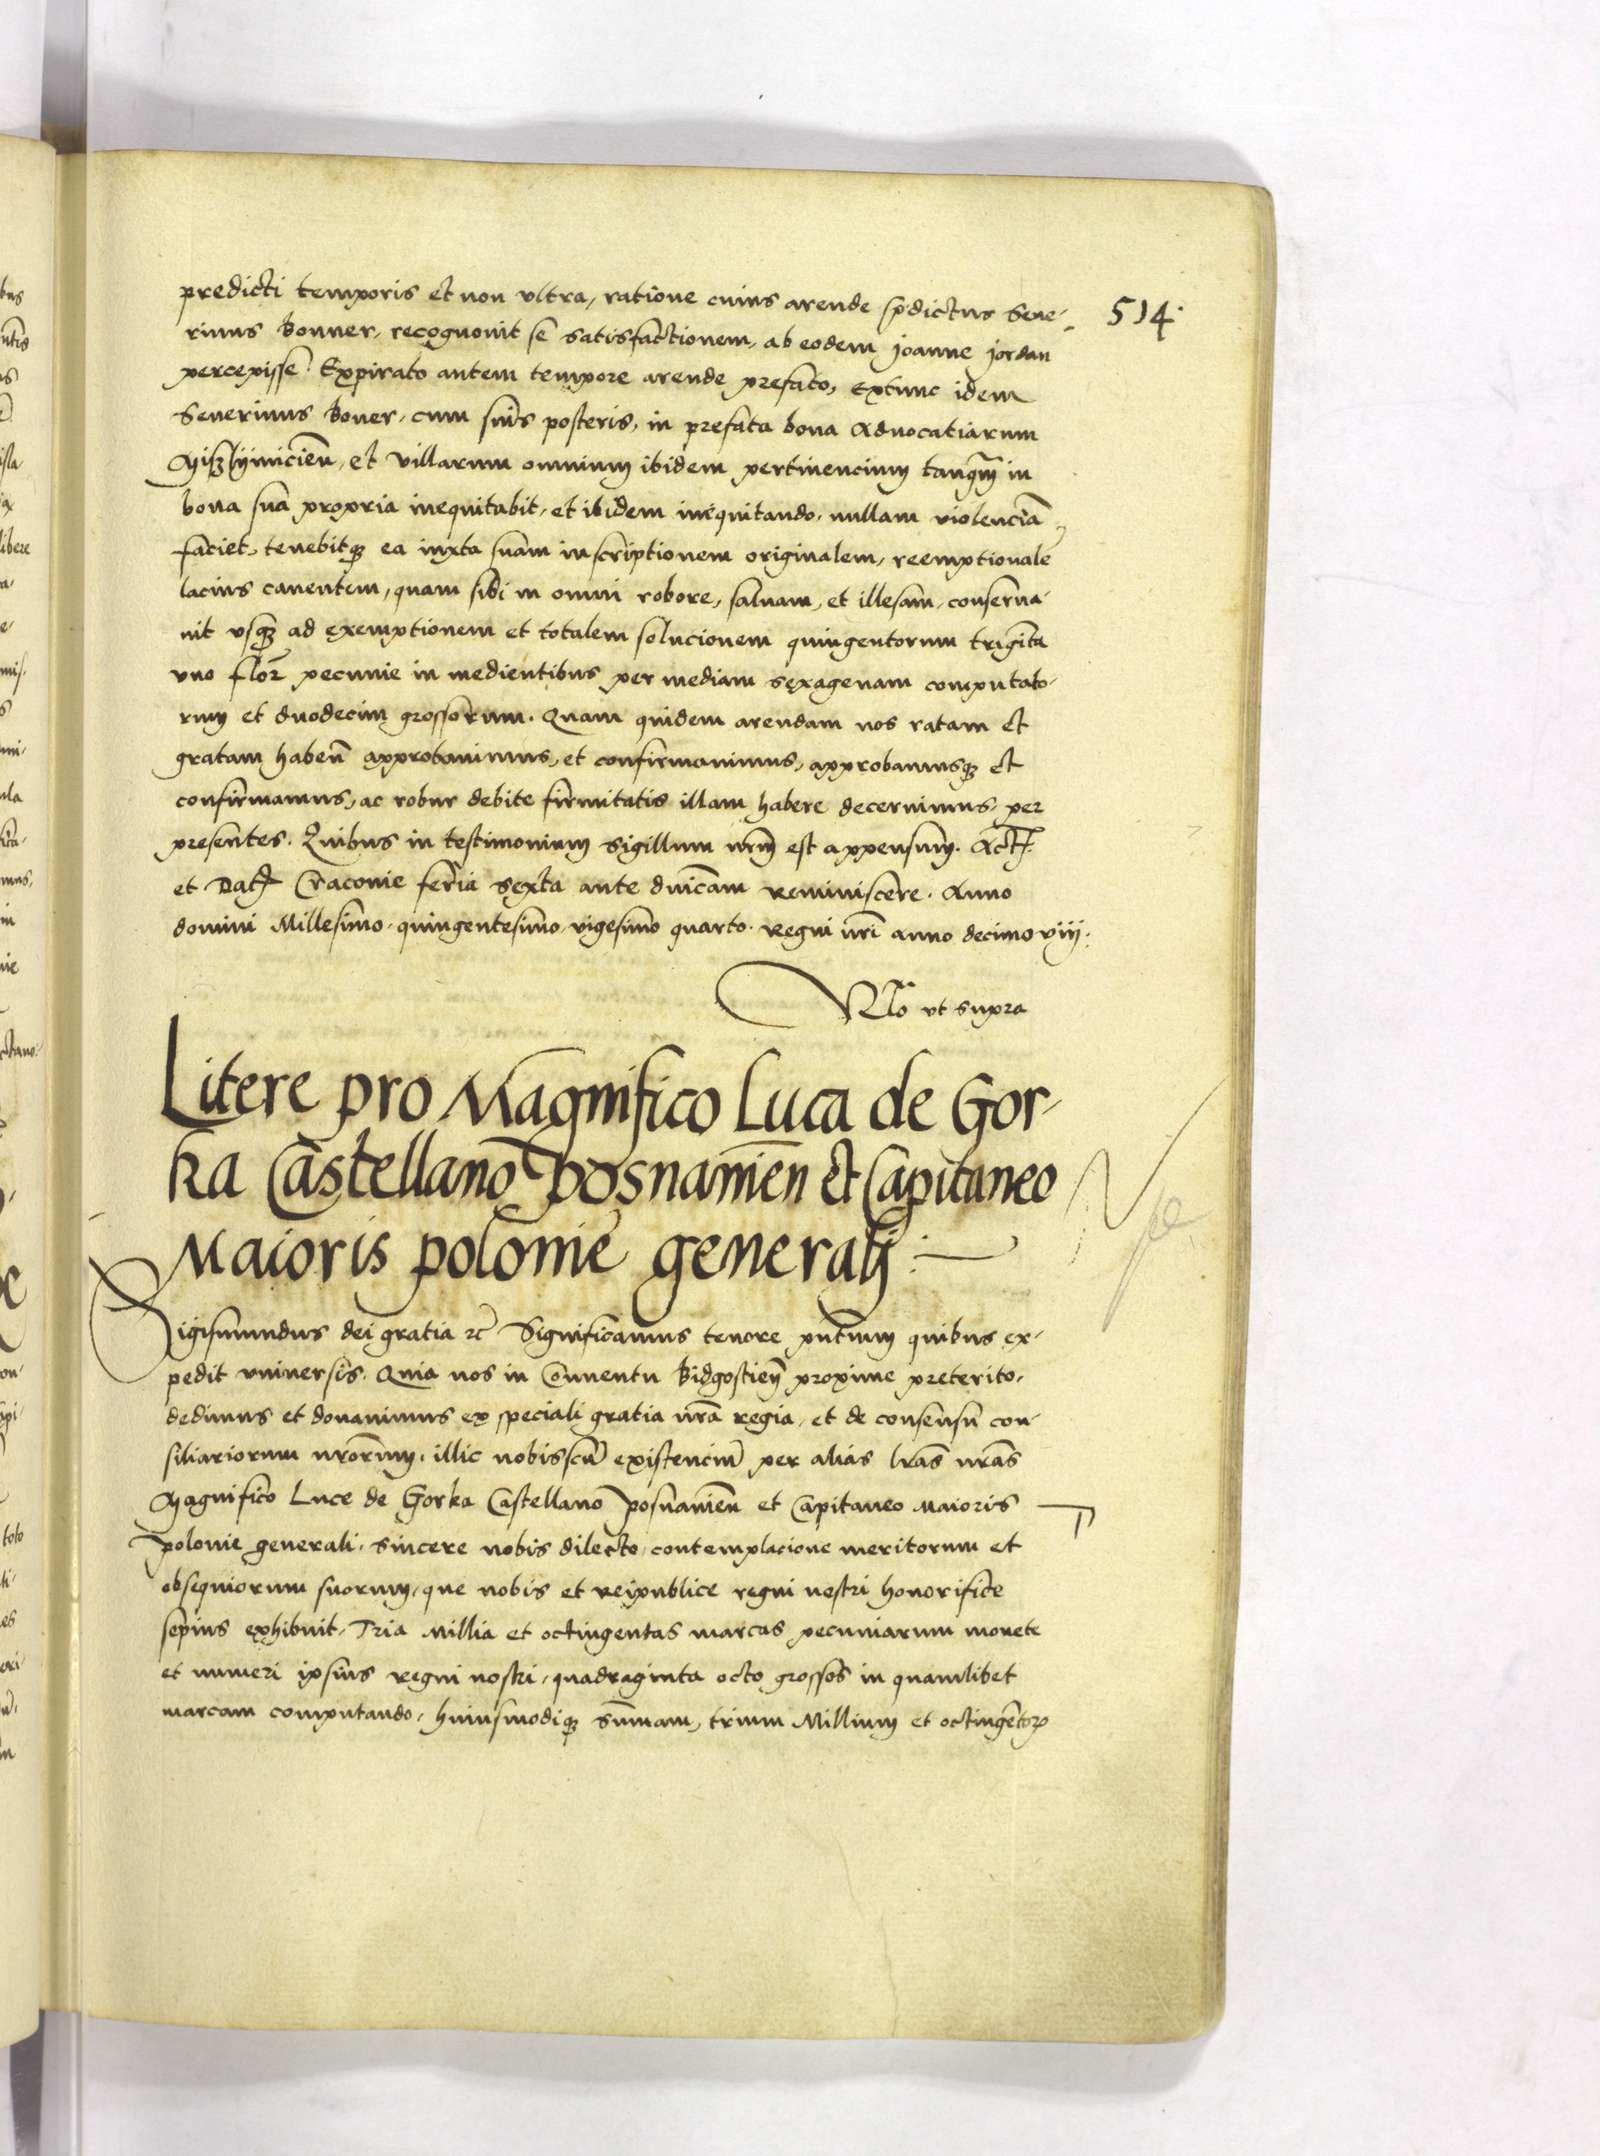 514.
predicti temporis et non vltra, ratione cuius arende spdictus Seue-
rinus Bonner, recognouit se satisfactionem, ab eodem Joanne Jordan
percepisse. Expirato autem tempore arende prefato, extunc idem
Seuerinus Boner, cum suis posteris, in prefata bona aduocatiarum
et villarum omnium ibidem pertinencium tanqm in
bona sua propria inequitabit, et ibidem inequitando, nullam violencia
faciet, tenebitqz ea iuxta suam inscriptionem originalem, reemptionale
lacius canentem, quam sibi in omni robore, saluam, et illesam, conserua-
uit vsqz ad exemptionem et totalem solucionem quingentorum triginta
vno flor pecunie in medientibus per mediam sexagenam computato-
rum et duodecim grossorum. Quam quidem arendam nos ratam et
gratam haben approbauimus, et confirmauimus, approbamusqz et
confirmamus, ac robur debite firmitatis illam habere decernimus, per
presentes. Quibus in testimonium sigillum nrm est appensum. Act
et Dat Cracouie feria sexta ante dnicam Reminiscere. Anno
domini Millesimo, quingentesimo, vigesimo quarto. Regni nri anno decimo viij.
Rlo vt supra
Litere pro Magnifico Luca de Gor-
ka Castellano Posnanien et Capitaneo
Maioris polonie generali
Sigismundus dei gratia zc Significamus tenore pntium quibus ex-
pedit vniuersis. Quia nos in Conuentu Bidgostien proxime preterito,
dedimus et donauimus ex speciali gratia nra regia, et de consensu con-
siliariorum nrorum, illic nobiscu existenciu per alias lras nras
Magnifico Luce de Gorka Castellano Posnanien et Capitaneo Maioris
polonie generali, sincere nobis dilecto, contemplacione meritorum et
obsequiorum suorum, que nobis et Reipublice regni nostri honorifice
sepius exhibuit, Tria Millia et octingentas marcas pecuniarum monete
et numeri ipsius Regni nostri, quadraginta octo grossos in quamlibet
marcam computando, huiusmodiqz summam, trium Millium et octingentor